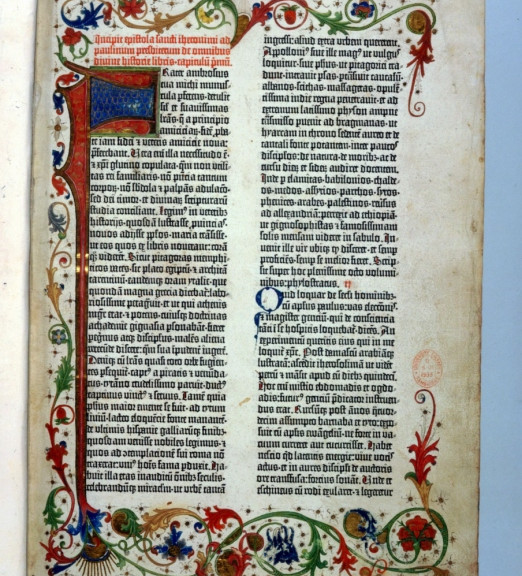 Incipit epistola sancti iheronimi ad
paulinum presbiterum de omnibus
divine historie libris. capitulū primū.
Frater ambrosius
tua michi munus-
cula pferens. detulit
sił et suavissimas
lrās. q̄ a principio
amiciciaȝ. fidē p̄ba-
te iam fidei ⁊ veteris amicicie nova:
p̄ferebant. Vera eni illa necessitudo ē.
⁊ xp̄i glutino copulata: qm non utili-
tas rei familiaris. nō p̄ncia tantum
corpoȝ. nō sbdola ⁊ palpās adulaco.
sed dei timor. et divinaȝ scripturarū
studia conciliant. Legim⁹ in veterib⁹
historijs. quosdā lustrasse, puīcias.
novos adiisse pplos. maria trāsisse.
ut eos quos ex libris noverant: corā
q⁊ viderēt. Sicut pitagoras memphi-
ticos vates. sic plato egiptū. ⁊ archita
tarentinū. eandemq⁊ oram ytalie. que
quondā magna grecia dicebat²: labo-
riosissime peragravit. et ut qui athenis
mgr̄ erat. ⁊ potens. cuiusq⁊ doctrinas
achademie gignasia psonabāt. fieret
peḡrinus atq⁊ discipulus. malēs aliena
verecūde discere: qm sua īpudent̄ ingere̾.
Deniq⁊ cū lrās quasi toto orbe fugien-
tes psequit̄. capt⁹ a piratis ⁊ venūda-
tus. tyrāno crudelissimo paruit. duct⁹
captivus vinct⁹ ⁊ servus. Tamē quia
phus maior emente se fuit. ad tytum
liviū. lacteo eloquētie fonte manantē.
de ultimis hispanie galliarūq⁊ finib⁹.
quosdam venisse nobiles legimus. ⁊
quos ad 9templacionē sui roma nō
traxerat: uni⁹ hoīs fama pduxit. Ha-
buit illa etas inauditū oīnib⁹ seculis.
celebrandūq⁊ miraclm. ut urbē tantā
ingressi: aliud extra urbem quererent.
Apollonius sive ille magus ut vulgus
loquitur. sive phus. ut pitagorici tra-
dunt. intravit psas. ptransivit caucasū.
albanos. scithas. massagetas. opulē-
tissima indie regna penetravit. et ad
extremum latissimo physon amne
trāsmisso puenit ad bragmanas. ut
hyarcam in throno sedentē aureo et de
tantali fonte potantem. inter paucos
discipulos: de natura. de moribȝ. ac de
cursu dierū et sideȝ audiret docentem.
Inde p elamitas. babilonios. chalde-
os. medos. assyrios. parthos. syros.
phenices. arabes. palestinos. reūsus
ad allexandriā: perrexit ad ethiopiā.
ut gignosophistas ⁊ famosissimam
solis mensam videret in sabulo. In-
venit ille vir ubiq⁊ qd disceret. et semp
proficiēs. semp se melior fieret. Scrip-
sit super hoc plenissime octo volumi-
nibus: phylostratus. II
Quid loquar de seclī hominibȝ.
cū apłus paulus: vas electōis.
⁊ magister gentiū. qui de consciencia
tāti ī se hospitis loquebat². dices. An
experimentū queritis eius qui in me
loquit² xp̄c. Post damascū arabiāq⁊
lustratā: ascēdit iherosolimā ut videt̄
petrū ⁊ māsit apud eū diebȝ quindeci.
Hoc eni mistio ebdomadis et ogdo-
adis: futur⁹ gentiū p̄dicator instruen-
dus erat. Rursūq⁊ post ānos q̄tuor-
decim assumpto barnaba et tyto: expo-
suit cū aplīs ewāgeliū: ne forte in va-
cuum curreret aut cucurrisset. Habet
nescio qd latentis energie: vive vocis
actus. et in aures discipli de auctoris
ore trāsfusa: forcius sonāt. Unde et
eschineus cū rodi exularet. ⁊ legeretur